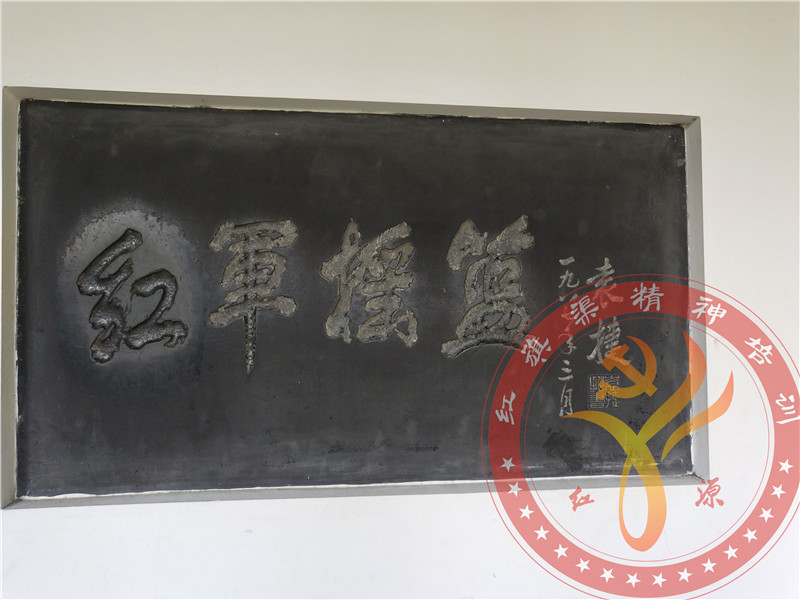 红軍摇篮
袁捷
一九八
年三月
红旗渠精神培训
红源